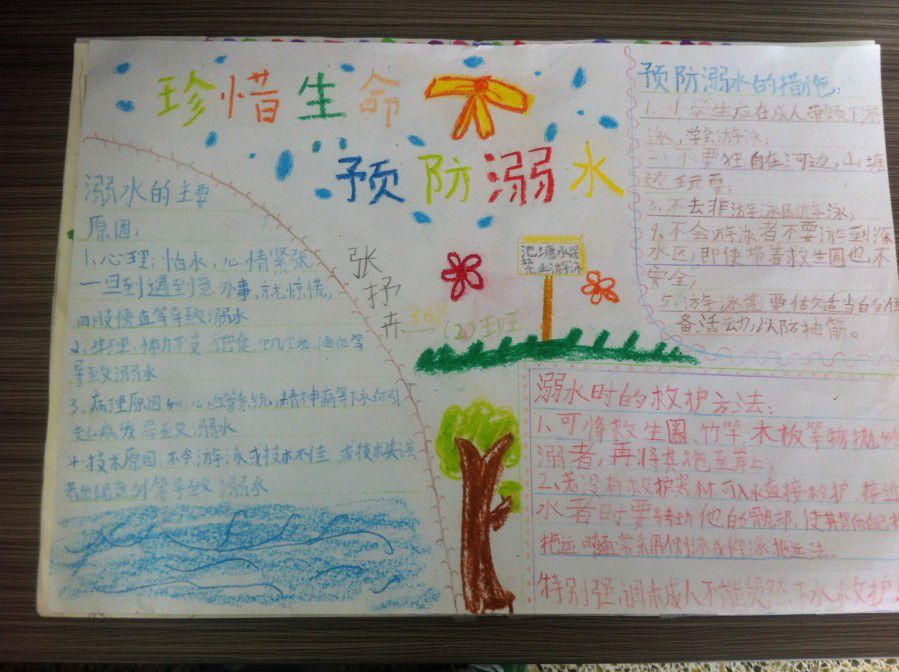 珍惜生命
预防溺水
溺水的主要
原因:
1、心理:怕水,心情紧张,
一旦到遇到意外事,就惊慌,
四肢僵直等导致溺水
2、生理:体力不支、饱食、饥饿、酒后等
导致溺水
3、病理原因如:心血管系统,精神病等下水何引
起病发导至溺水
4、技术原因:不会游泳或技术不佳,或技术失误
者出现意外等导致溺水
张
抒
卉
(2)班
池塘水深
禁止游泳
预防溺水的措施:
1、小学生应在成人带领下游
泳,学会游泳;
二、不要独自在河边,山塘
边玩耍;
3、不去非游泳区游泳;
4、不会游泳者不要游到深
水区,即使带着救生圈也不
安全;
5、游泳前要做适当的
备活动,以防抽筋。
溺水时的救护方法:
1、可将救生圈、竹竿、木板等物抛
溺者,再将其拖至岸上;
2、若没有救护器材,可入水直接救护。接近
水者时要转动他的髋部,使其背向自己
拖运。通常采用侧泳或仰泳拖运法。
特别强调:未成人不能贸然下水救护